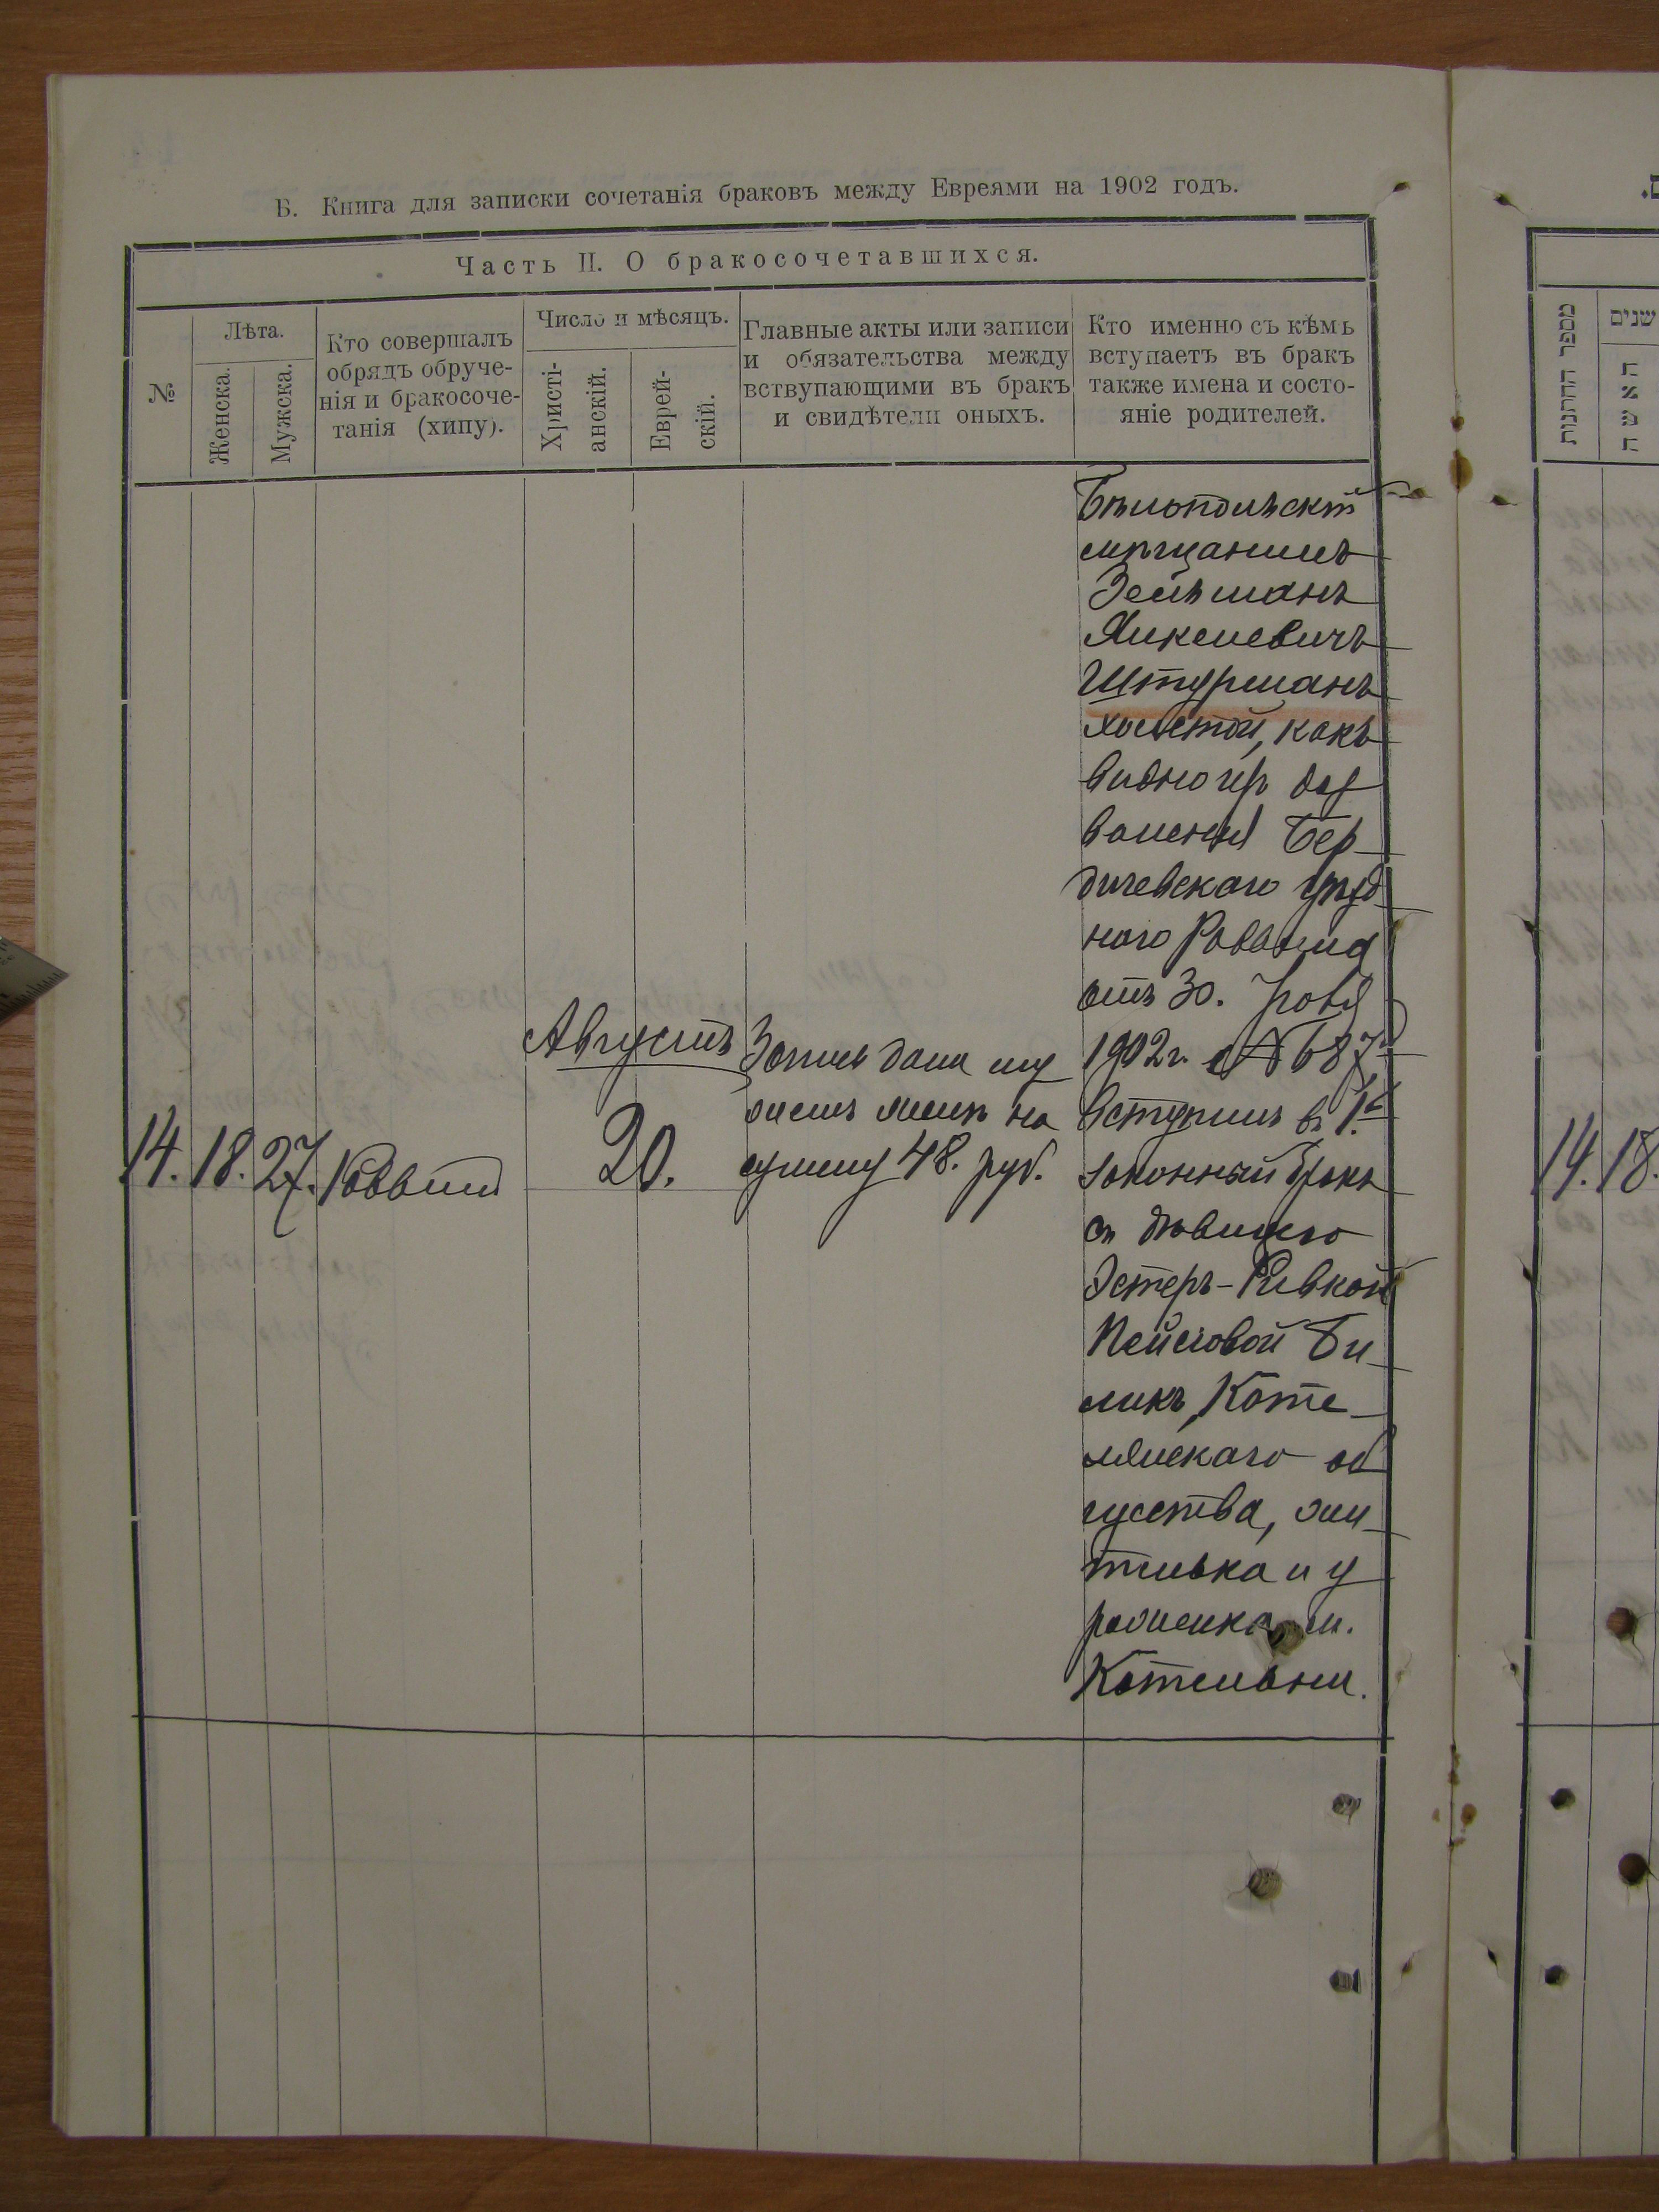 Б. Книга для записки сочетанія браковъ между Евреями на 1902 годъ.
Часть II. О бракосочетавшихся.
№
Лѣта.
Женска.
Мужска.
Кто совершалъ
обрядъ обруче-
нія и бракосоче-
танія (хипу).
Число и мѣсяцъ.
Христі-
анскій.
Еврей-
скій.
Главные акты или записи
и обязательства между
вствупающими въ бракъ
и свидѣтели оныхъ.
Кто именно съ кѣмъ
вступаетъ въ бракъ
также имена и состо-
яніе родителей.
14. 18. 27. Раввинъ
Августъ
20.
Запись дана му
жемъ женѣ на
сумму 48. руб.
Бѣлопольскій
мѣщанинъ
Зельманъ
Янкелевичъ
Штурманъ
холостой, какъ
видно изъ доз
воленія Бер
дичевскаго уѣзд
наго Раввина
отъ 30.
1902 г. № 687
вступилъ въ 1й
законный бракъ
съ дѣвицею
Эстеръ-Ривкой
Пейсовой Би
ликъ, Коте
лянскаго об
щества, жи
телька и у
роженка м.
Котельни.
מספר החתונות
שנים
האשה
14. 18.